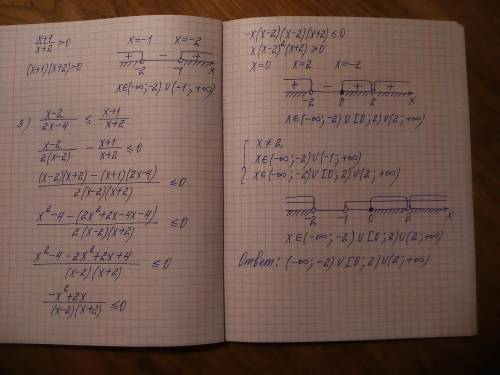 x+1/x+2 >0
(x+1)(x+2)>0
x=-1 x=-2
+ - +
-2 -1 x
x∈(-∞;-2)∪(-1;+∞)
3) x-2/2x-4 ≤ x+1/x+2
x-2/2(x-2) - x+1/x+2 ≤0
(x-2)(x+2)-(x+1)(2x-4)/2(x-2)(x+2) ≤0
x²-4-(2x²+2x-4x-4)/2(x-2)(x+2) ≤0
x²-4-2x²+2x+4/(x-2)(x+2) ≤0
-x²+2x/(x-2)(x+2) ≤0
-x(x-2)(x-2)(x+2)≤0
x(x-2)²(x+2)≥0
x=0 x=2 x=-2
+ - + +
-2 0 2 x
x∈(-∞;-2)∪[0;2)∪(2;+∞)
x≠2
x∈(-∞;-2)∪(-1;+∞)
x∈(-∞;-2)∪[0;2)∪(2;+∞)
-2 -1 0 2 x
x∈(-∞;-2)∪[0;2)∪(2;+∞)
Ответ: (-∞;-2)∪[0;2)∪(2;+∞)